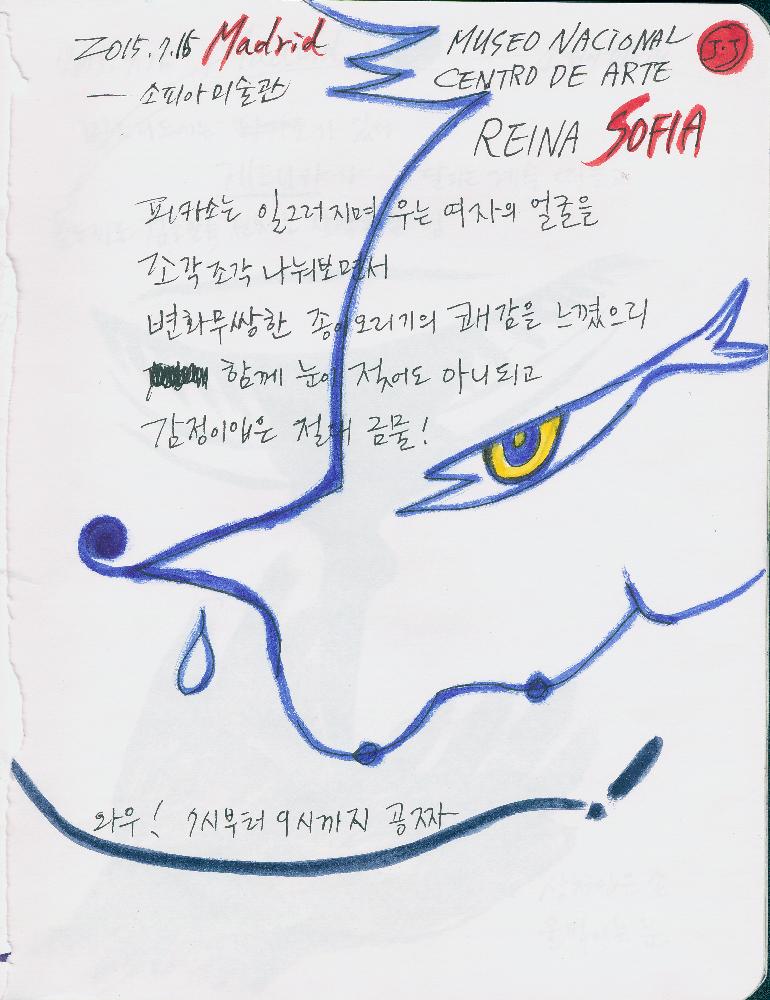 2015.7.15 Madrid
— 소피아 미술관
MUSEO NACIONAL
CENTRO DE ARTE
REINA SOFIA
J.J
피카소는 일그러지며 우는 여자의 얼굴을
조각조각 나눠보면서
변화무쌍한 종이오리기의 쾌감을 느꼈으리
함께 눈이 젖어도 아니되고
감정이입은 절대 금물!
와우! 7시부터 9시까지 공짜